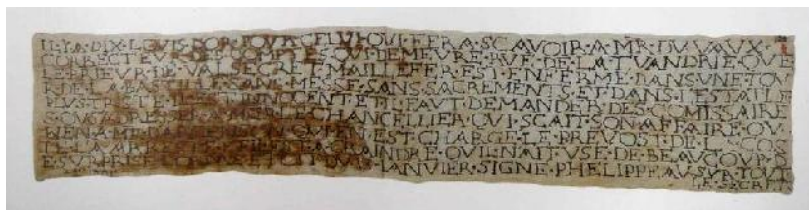 IL·YA·DIX·LOVIS·POR·POVR·CELVI·QVI·FERA·SCAVOIR·A·MR·DV·VAVX·
CORRECTEVR·COMPTE·QVI·DEMEVRE·RVE·DE·LATVANDRIE·QVE
LE·PRIEVR·DE·VAL·SECRET·MAILLEFER·EST·ENFERME·DANS·VNE·TOV
R·DE·LABAS·SANS·MESSE·SANS·SACREMENTS·ET·DANS·LESTAT·LE
PLVS·TRISTE·IL·EST·INNOCENT·ET·IL·FAVT·DEMANDER·DES·COMISSAIRE
S·OV·SADRESSER·A·MR·LE·CHANCELLIER·QVI·SCAIT·SON·AFFAIRE·OV·
BIEN·A·MR·EST·CHARGE·LE·PREVOST·DE·
CRAINDRE·QVIL·NAIT·VSE·DE·BEAVCOVP·D
E·SVRPRISE·IANVIER·SIGNE·PHELIPPEAV·SVR·TOVT
LE·SECRET